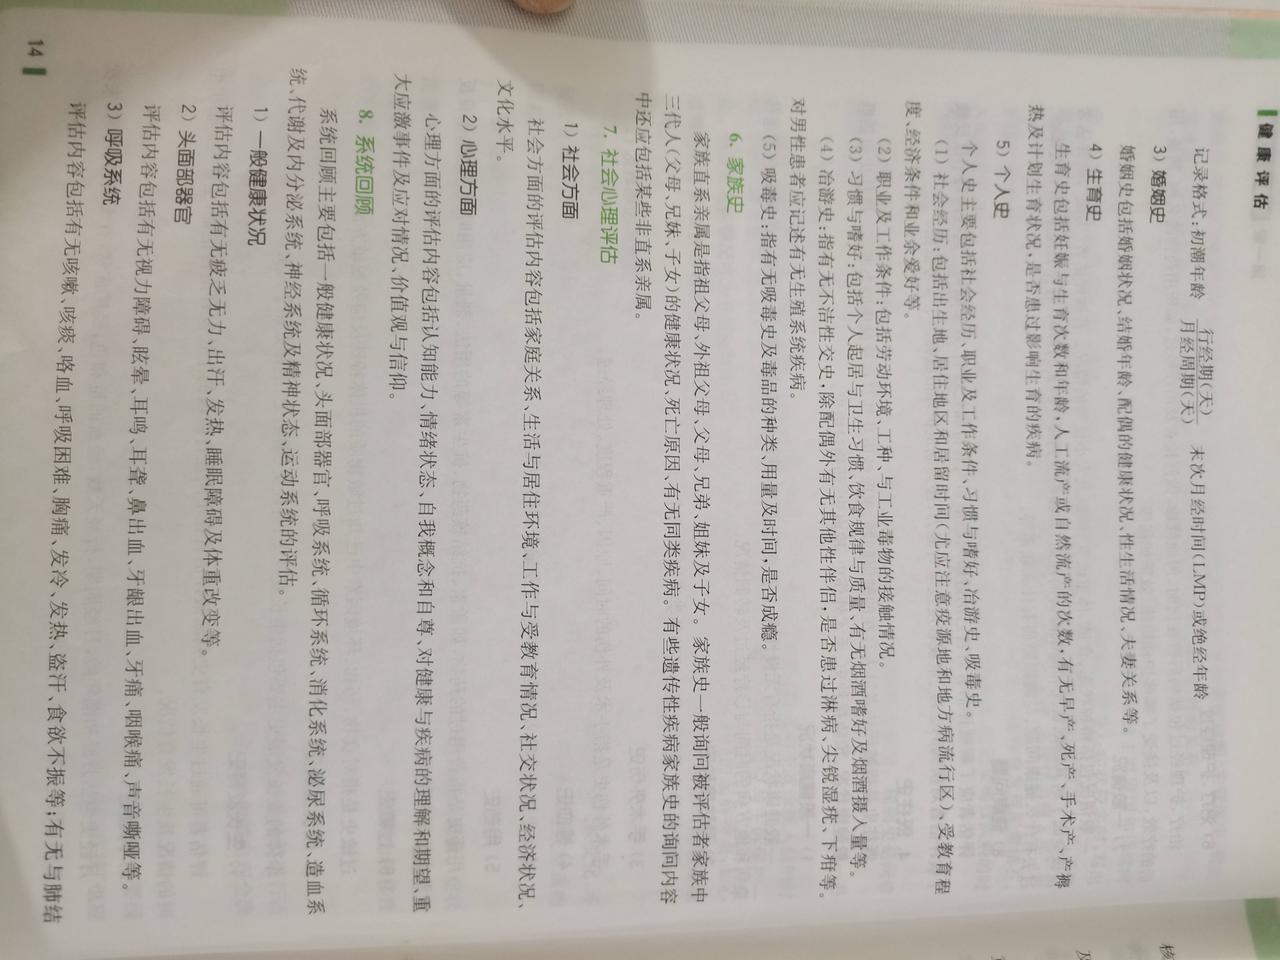 健康评估
记录格式:初潮年龄 行经期(天)/月经周期(天) 末次月经时间(LMP)或绝经年龄
3）婚姻史
婚姻史包括婚姻状况、结婚年龄、配偶的健康状况、性生活情况、夫妻关系等。
4）生育史
生育史包括妊娠与生育次数和年龄,人工流产或自然流产的次数,有无早产、死产、手术产、产褥
热及计划生育状况,是否患过影响生育的疾病。
5）个人史
个人史主要包括社会经历、职业及工作条件、习惯与嗜好、冶游史、吸毒史。
（1）社会经历:包括出生地、居住地区和居留时间(尤应注意疫源地和地方病流行区)、受教育程
度、经济条件和业余爱好等。
（2）职业及工作条件:包括劳动环境、工种、与工业毒物的接触情况。
（3）习惯与嗜好:包括个人起居与卫生习惯、饮食规律与质量、有无烟酒嗜好及烟酒摄入量等。
（4）冶游史:指有无不洁性交史,除配偶外有无其他性伴侣,是否患过淋病、尖锐湿疣、下疳等。
对男性患者应记述有无生殖系统疾病。
（5）吸毒史:指有无吸毒史及毒品的种类、用量及时间,是否成瘾。
6. 家族史
家族直系亲属是指祖父母、外祖父母、父母、兄弟、姐妹及子女。家族史一般询问被评估者家族中
三代人(父母、兄妹、子女)的健康状况、死亡原因、有无同类疾病。有些遗传性疾病家族史的询问内容
中还应包括某些非直系亲属。
7. 社会心理评估
1）社会方面
社会方面的评估内容包括家庭关系、生活与居住环境、工作与受教育情况、社交状况、经济状况、
文化水平。
2）心理方面
心理方面的评估内容包括认知能力、情绪状态、自我概念和自尊、对健康与疾病的理解和期望、重
大应激事件及应对情况、价值观与信仰。
8. 系统回顾
系统回顾主要包括一般健康状况、头面部器官、呼吸系统、循环系统、消化系统、泌尿系统、造血系
统、代谢及内分泌系统、神经系统及精神状态、运动系统的评估。
1）一般健康状况
评估内容包括有无疲乏无力、出汗、发热、睡眠障碍及体重改变等。
2）头面部器官
评估内容包括有无视力障碍、眩晕、耳鸣、耳聋、鼻出血、牙龈出血、牙痛、咽喉痛、声音嘶哑等。
3）呼吸系统
评估内容包括有无咳嗽、咳痰、咯血、呼吸困难、胸痛、发冷、发热、盗汗、食欲不振等;有无与肺结
14
核
及